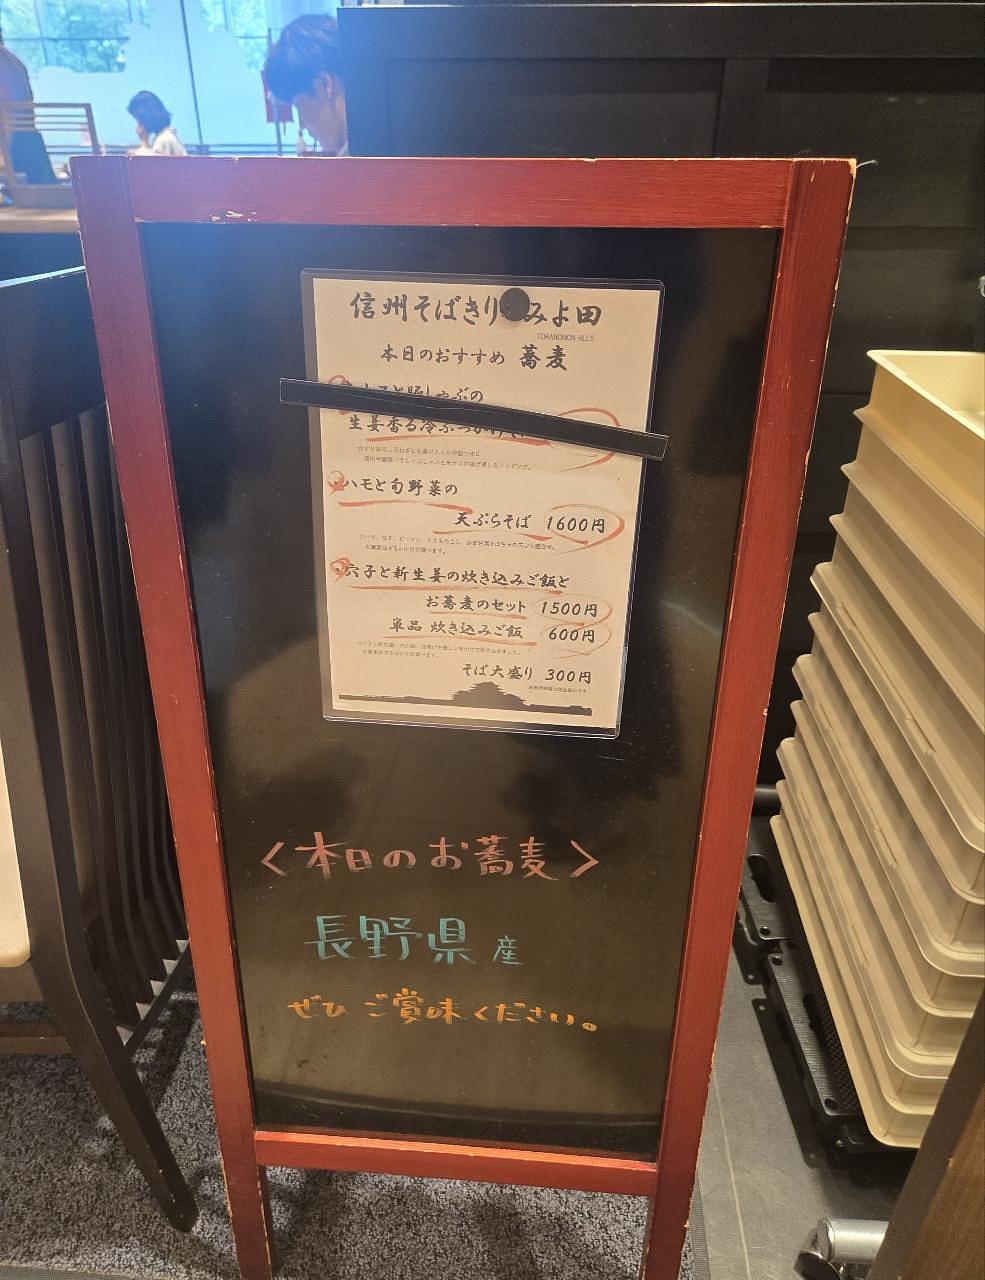 信州そばきり みよ田
TORANOMON HILLS
本日のおすすめ 蕎麦
と豚しゃぶの
生姜香る冷ぶっかけ
ハモと旬野菜の
天ぷらそば 1600円
お蕎麦はざるかかけが選べます。
・穴子と新生姜の炊き込みご飯と
お蕎麦のセット 1500円
単品 炊き込みご飯 600円
お蕎麦はざるかかけが選べます。
そば大盛り 300円
〈本日のお蕎麦〉
長野県産
ぜひご賞味ください。